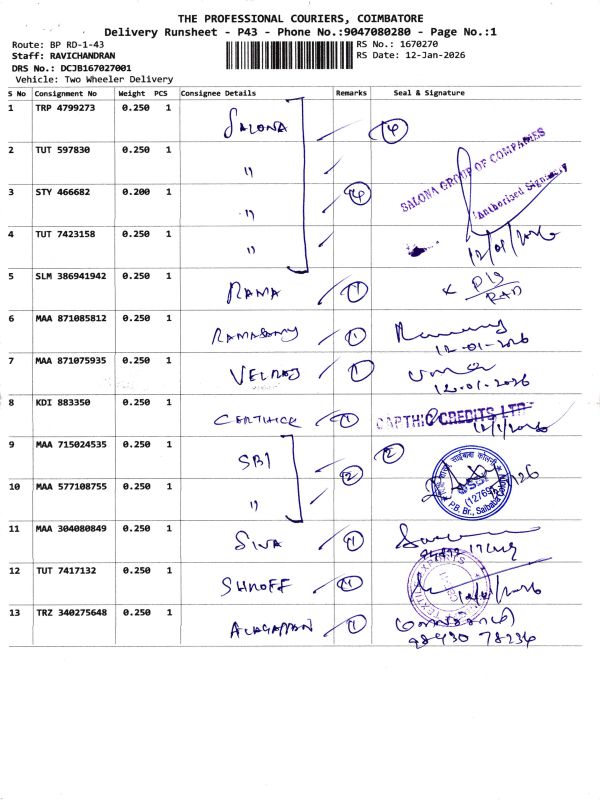 THE PROFESSIONAL COURIERS, COIMBATORE
Delivery Runsheet - P43 - Phone No.:9047080280 - Page No.:1
Route: BP RD-1-43
RS No.: 1670270
Staff: RAVICHANDRAN
RS Date: 12-Jan-2026
DRS No.: DCJB167027001
Vehicle: Two Wheeler Delivery
S No Consignment No Weight PCS Consignee Details Remarks Seal & Signature
1 TRP 4799273 0.250 1 SALONA 4
2 TUT 597830 0.250 1 " SALONA GROUP OF COMPANIES
3 STY 466682 0.200 1 " 4 Authorised Signatory
4 TUT 7423158 0.250 1 " 12/01/2026
5 SLM 386941942 0.250 1 RAMA 1
6 MAA 871085812 0.250 1 RAMASAMY 1
12-01-2026
7 MAA 871075935 0.250 1 VELRAJ 1
12.01.2026
8 KDI 883350 0.250 1 1 CREDITS LTD
12/1/2026
9 MAA 715024535 0.250 1 SBI 2
10 MAA 577108755 0.250 1 " 2 (12769)
P.B. Br., Saibaba
11 MAA 304080849 0.250 1 SIVA 1
12 TUT 7417132 0.250 1 SHROFF 1
13 TRZ 340275648 0.250 1 ALAGAPPAN 1
98430 78236